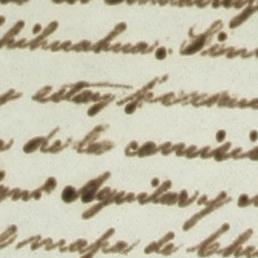 Chihuahua. Sin
y estoy persua
de la comisi
Ign.º Aguilar y
el mapa de Chi